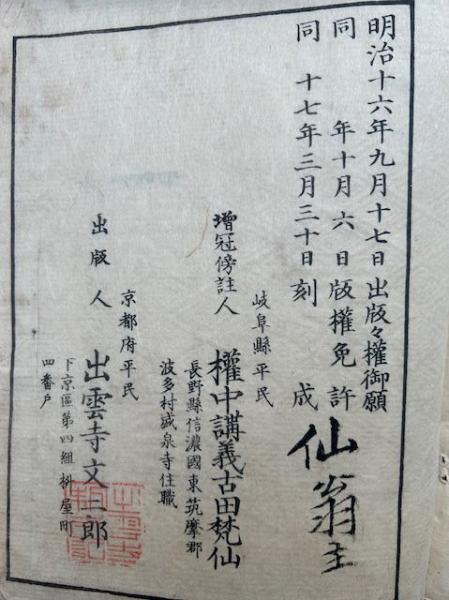 明治十六年九月十七日出版々權御願
同　年十月六日版權免許
同　十七年三月三十日刻成
仙翁主
岐阜縣平民
增冠傍註人　權中講義古田梵仙
長野縣信濃國東筑摩郡
波多村盛泉寺住職
京都府平民
出版人　出雲寺文二郎
下京區第四組桝屋町
四番戶